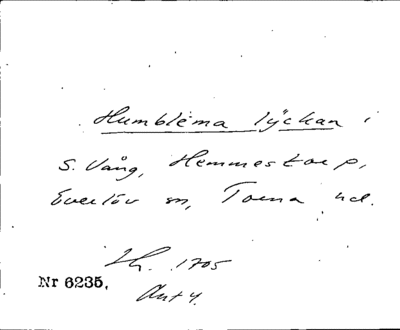 Humblema lÿckan i
S. Vång, Hemmestorp,
Everlöv sn, Torna hd.
Lh. 1705
Nr 6235.
Ant 4.